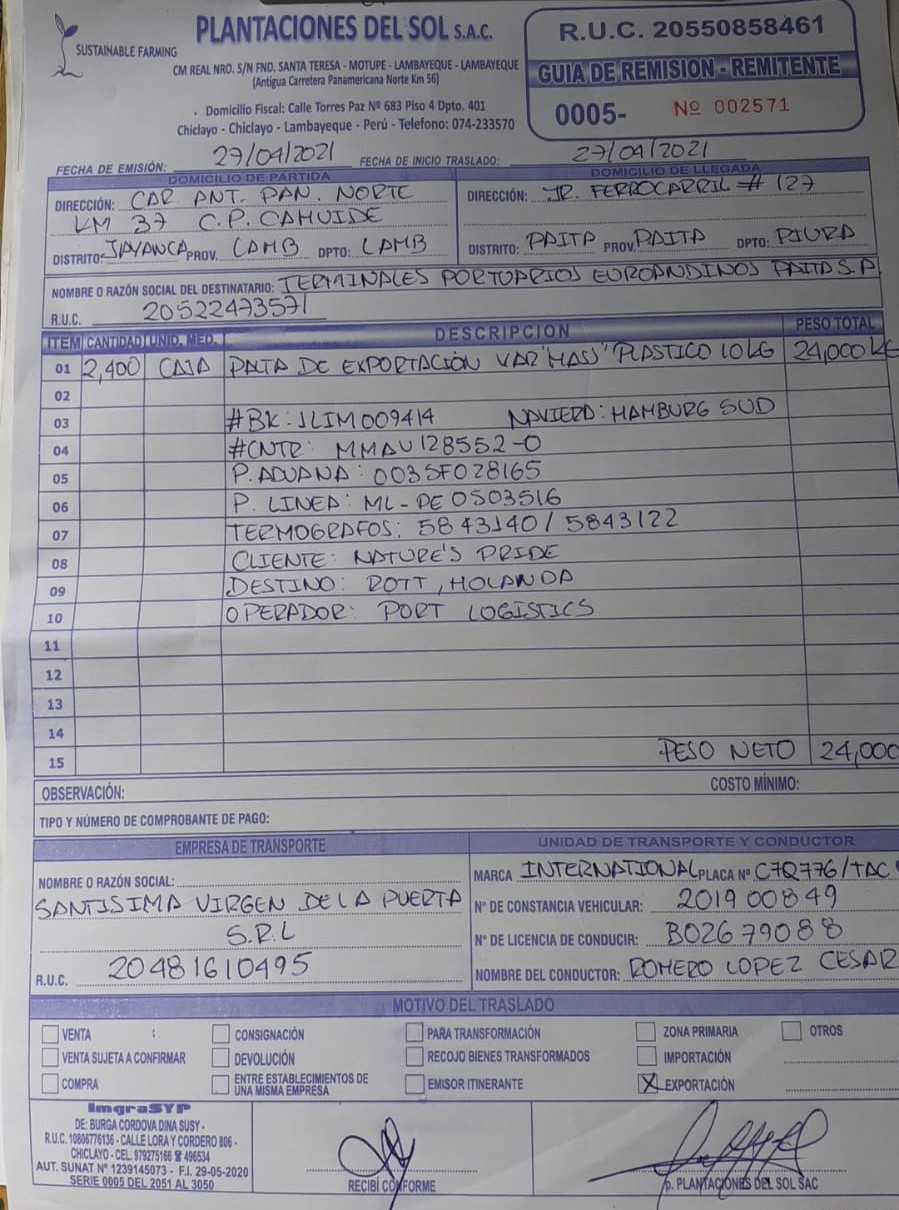 SUSTAINABLE FARMING
PLANTACIONES DEL SOL S.A.C.
CM REAL NRO. S/N FND. SANTA TERESA - MOTUPE - LAMBAYEQUE - LAMBAYEQUE
(Antigua Carretera Panamericana Norte Km 56)
. Domicilio Fiscal: Calle Torres Paz Nº 683 Piso 4 Dpto. 401
Chiclayo - Chiclayo - Lambayeque - Perú - Telefono: 074-233570
R.U.C. 20550858461
GUIA DE REMISION - REMITENTE
0005- Nº 002571
FECHA DE EMISIÓN: 27/04/2021 FECHA DE INICIO TRASLADO: 27/04/2021
DOMICILIO DE PARTIDA
DIRECCIÓN: CAR. ANT. PAN. NORTE
KM 37 C.P. CAHUIDE
DISTRITO: JAYANCA PROV. LAMB DPTO: LAMB
DOMICILIO DE LLEGADA
DIRECCIÓN: JR. FERROCARRIL # 127
DISTRITO: PAITA PROV. PAITA DPTO: PIURA
NOMBRE O RAZÓN SOCIAL DEL DESTINATARIO: TERMINALES PORTUARIOS EUROANDINOS PAITA S.A
R.U.C. 20522473571
ITEM CANTIDAD UNID. MED. DESCRIPCION PESO TOTAL
01 2,400 CAJA PALTA DE EXPORTACIÓN VAR "HASS" PLASTICO 10KG 24,000 KG
02
03 #BK: 1LIM009414 NAVIERA: HAMBURG SUD
04 #CNTR: MMAU128552-0
05 P. ADUANA: 0035F028165
06 P. LINEA: ML-PE0503516
07 TERMOGRAFOS: 5843140 / 5843122
08 CLIENTE: NATURE'S PRIDE
09 DESTINO: ROTT, HOLANDA
10 OPERADOR: PORT LOGISTICS
11
12
13
14
15 PESO NETO 24,000
OBSERVACIÓN: COSTO MÍNIMO:
TIPO Y NÚMERO DE COMPROBANTE DE PAGO:
EMPRESA DE TRANSPORTE
NOMBRE O RAZÓN SOCIAL:
SANTISIMA VIRGEN DE LA PUERTA
S.R.L
R.U.C. 20481610495
UNIDAD DE TRANSPORTE Y CONDUCTOR
MARCA INTERNATIONAL PLACA Nº C7Q776/TAC
Nº DE CONSTANCIA VEHICULAR: 201900849
Nº DE LICENCIA DE CONDUCIR: B02679088
NOMBRE DEL CONDUCTOR: ROMERO LOPEZ CESAR
MOTIVO DEL TRASLADO
VENTA CONSIGNACIÓN PARA TRANSFORMACIÓN ZONA PRIMARIA OTROS
VENTA SUJETA A CONFIRMAR DEVOLUCIÓN RECOJO BIENES TRANSFORMADOS IMPORTACIÓN
COMPRA ENTRE ESTABLECIMIENTOS DE UNA MISMA EMPRESA EMISOR ITINERANTE X EXPORTACIÓN
ImgraSYP
DE: BURGA CORDOVA DINA SUSY -
R.U.C. 10806776136 - CALLE LORA Y CORDERO 806 -
CHICLAYO - CEL. 979275166 ☎ 496534
AUT. SUNAT Nº 1239145073 - F.I. 29-05-2020
SERIE 0005 DEL 2051 AL 3050
RECIBÍ CONFORME
p. PLANTACIONES DEL SOL SAC